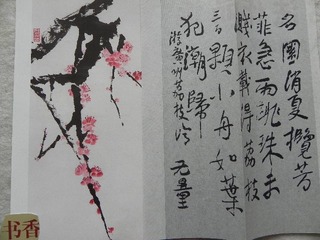 名園消夏攬芳
菲急雨跳珠未
濺衣載得荔枝
三百顆小舟如葉
犯潮歸
游黄州荔枝湾 无量
书香